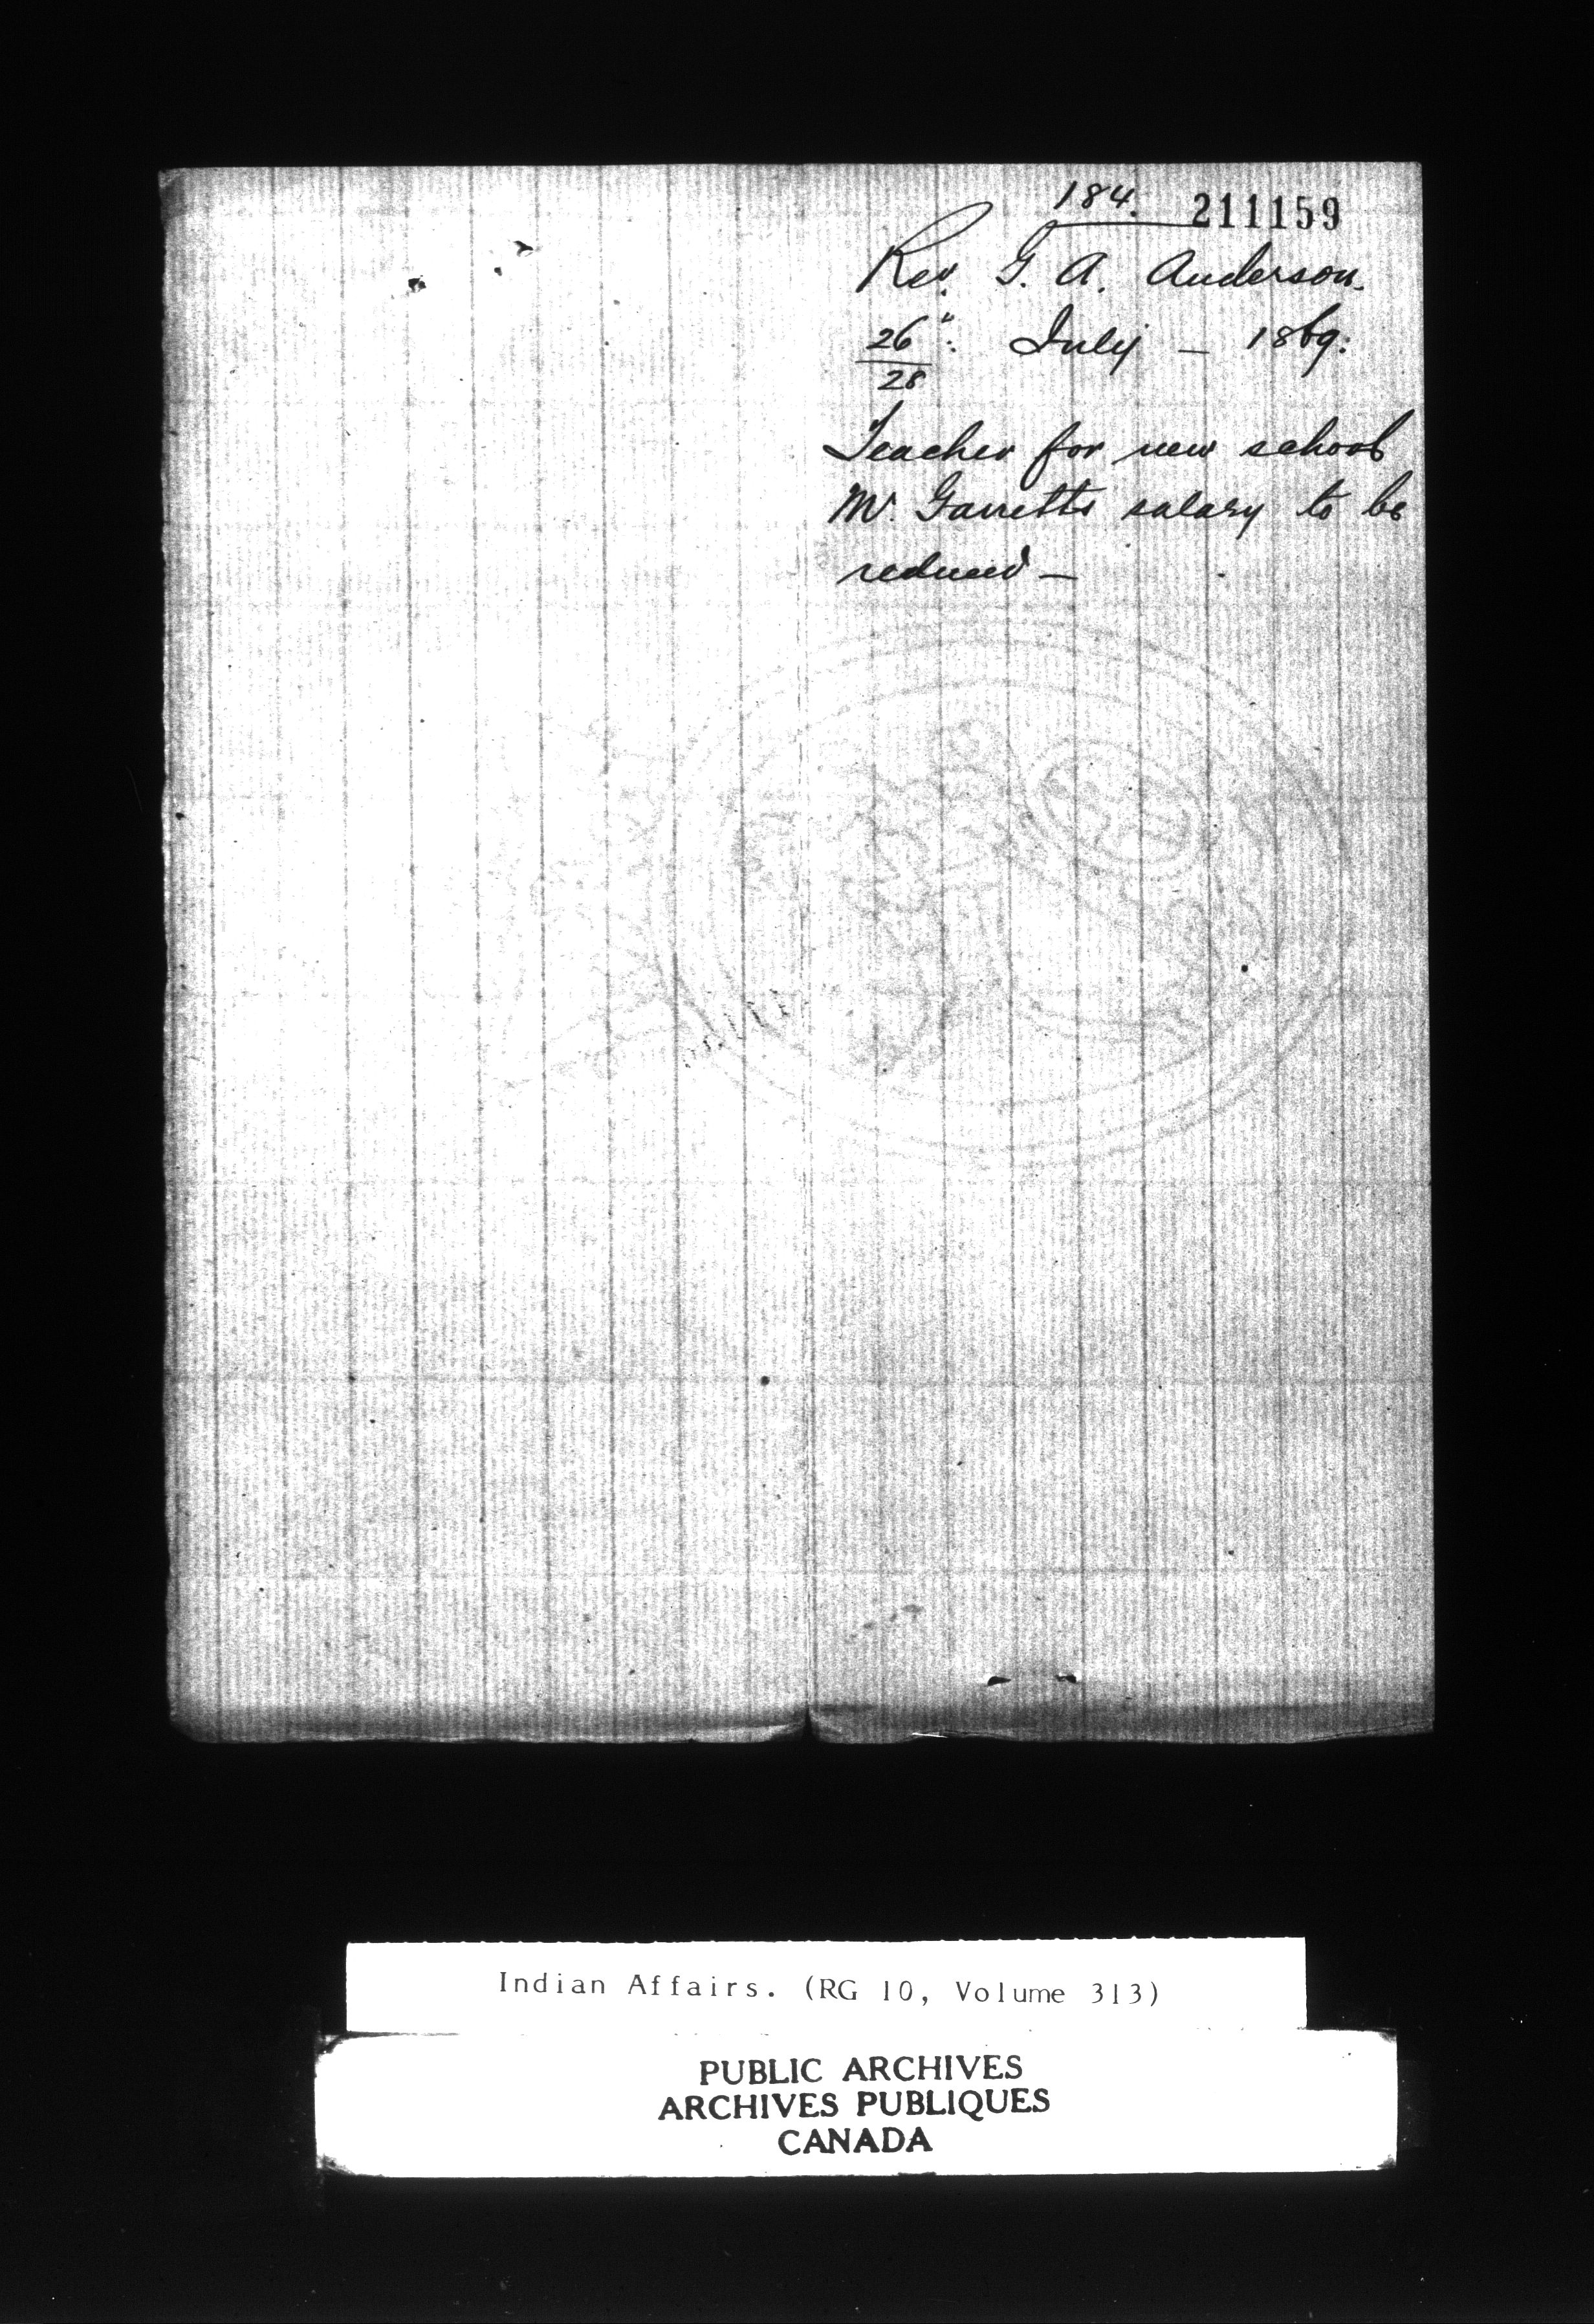 184. 211159
Rev. G. A. Anderson.
26": July — 1869:
28
Teacher for new school
Mr. Garretts salary to be
reduced —
Indian Affairs. (RG 10, Volume 313)
PUBLIC ARCHIVES
ARCHIVES PUBLIQUES
CANADA